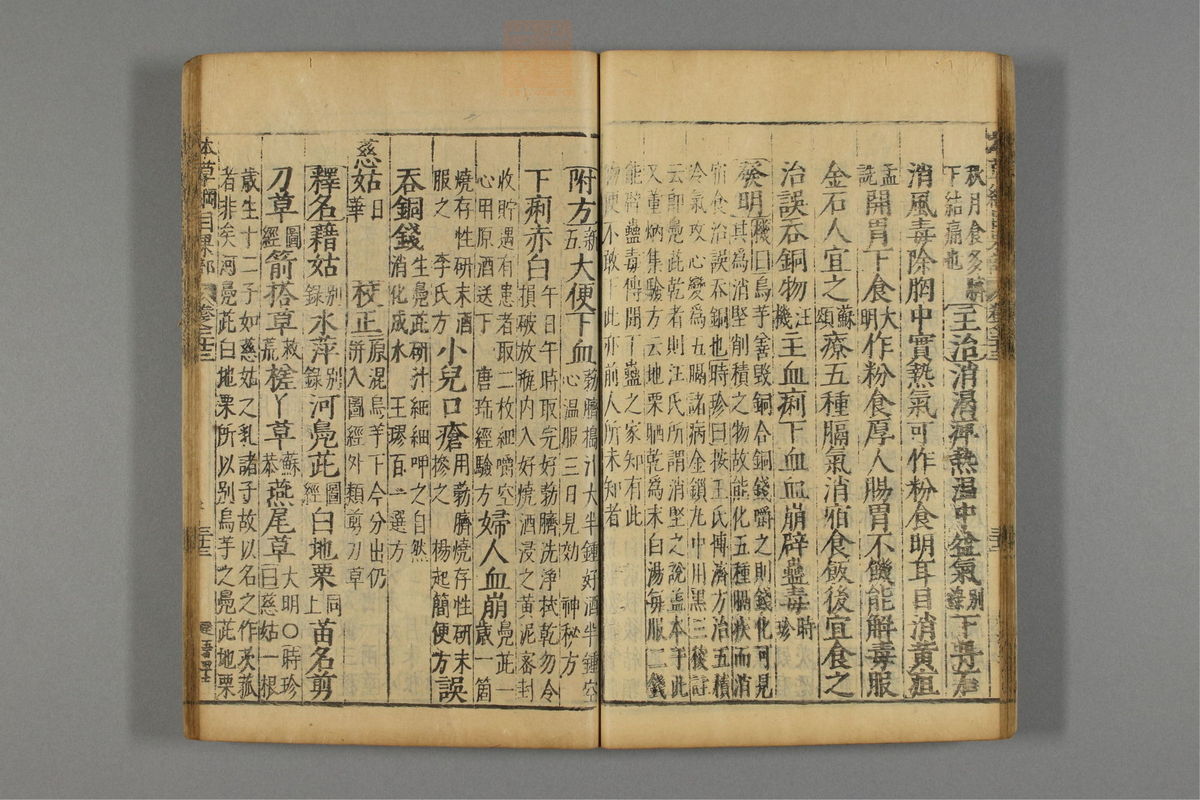 秋月食多
下結痛𤺋
主治消渴痹熱溫中益氣別錄下丹石
消風毒除胸中實熱氣可作粉食明耳目消黃疸
孟詵開胃下食大明作粉食厚人腸胃不饑能解毒服
金石人宜之蘇頌療五種膈氣消宿食飯後宜食之
治誤吞銅物汪機主血痢下血血崩辟蠱毒時珍
發明機曰烏芋善毀銅合銅錢嚼之則錢化可見
其為消堅削積之物故能化五種膈疾而消
宿食治誤吞銅也時珍曰按王氏博濟方治五積
冷氣攻心變為五膈諸病金鎖丸中用黑三稜註
云即鳧茈乾者則汪氏所謂消堅之說葢本于此
又董炳集驗方云地栗晒乾為末白湯每服二錢
能辟蠱毒傳聞下蠱之家知有此
物便不敢下此亦前人所未知者
附方新五大便下血葧臍搗汁大半鍾好酒半鍾空
心溫服三日見効 神秘方
下痢赤白午日午時取完好葧臍洗淨拭乾勿令
損破於瓶內入好燒酒浸之黃泥密封
收貯遇有患者取二枚細嚼空
心用原酒送下 唐瑤經驗方
婦人血崩鳧茈一
歲一箇
燒存性研末酒
服之 李氏方
小兒口瘡用葧臍燒存性研末
摻之 楊起簡便方
誤
吞銅錢生鳧茈研汁細細呷之自然
消化成水 王璆百一選方
慈姑日華 校正原混烏芋下今分出仍
併入圖經外類剪刀草
釋名藉姑別錄水萍別錄河鳧茈圖經白地栗同上苗名剪
刀草圖經箭搭草救荒槎丫草蘇恭燕尾草大明〇時珍
曰慈姑一根
歲生十二子如慈姑之乳諸子故以名之作茨菰
者非矣河鳧茈白地栗所以別烏芋之鳧茈地栗
本草綱目果部